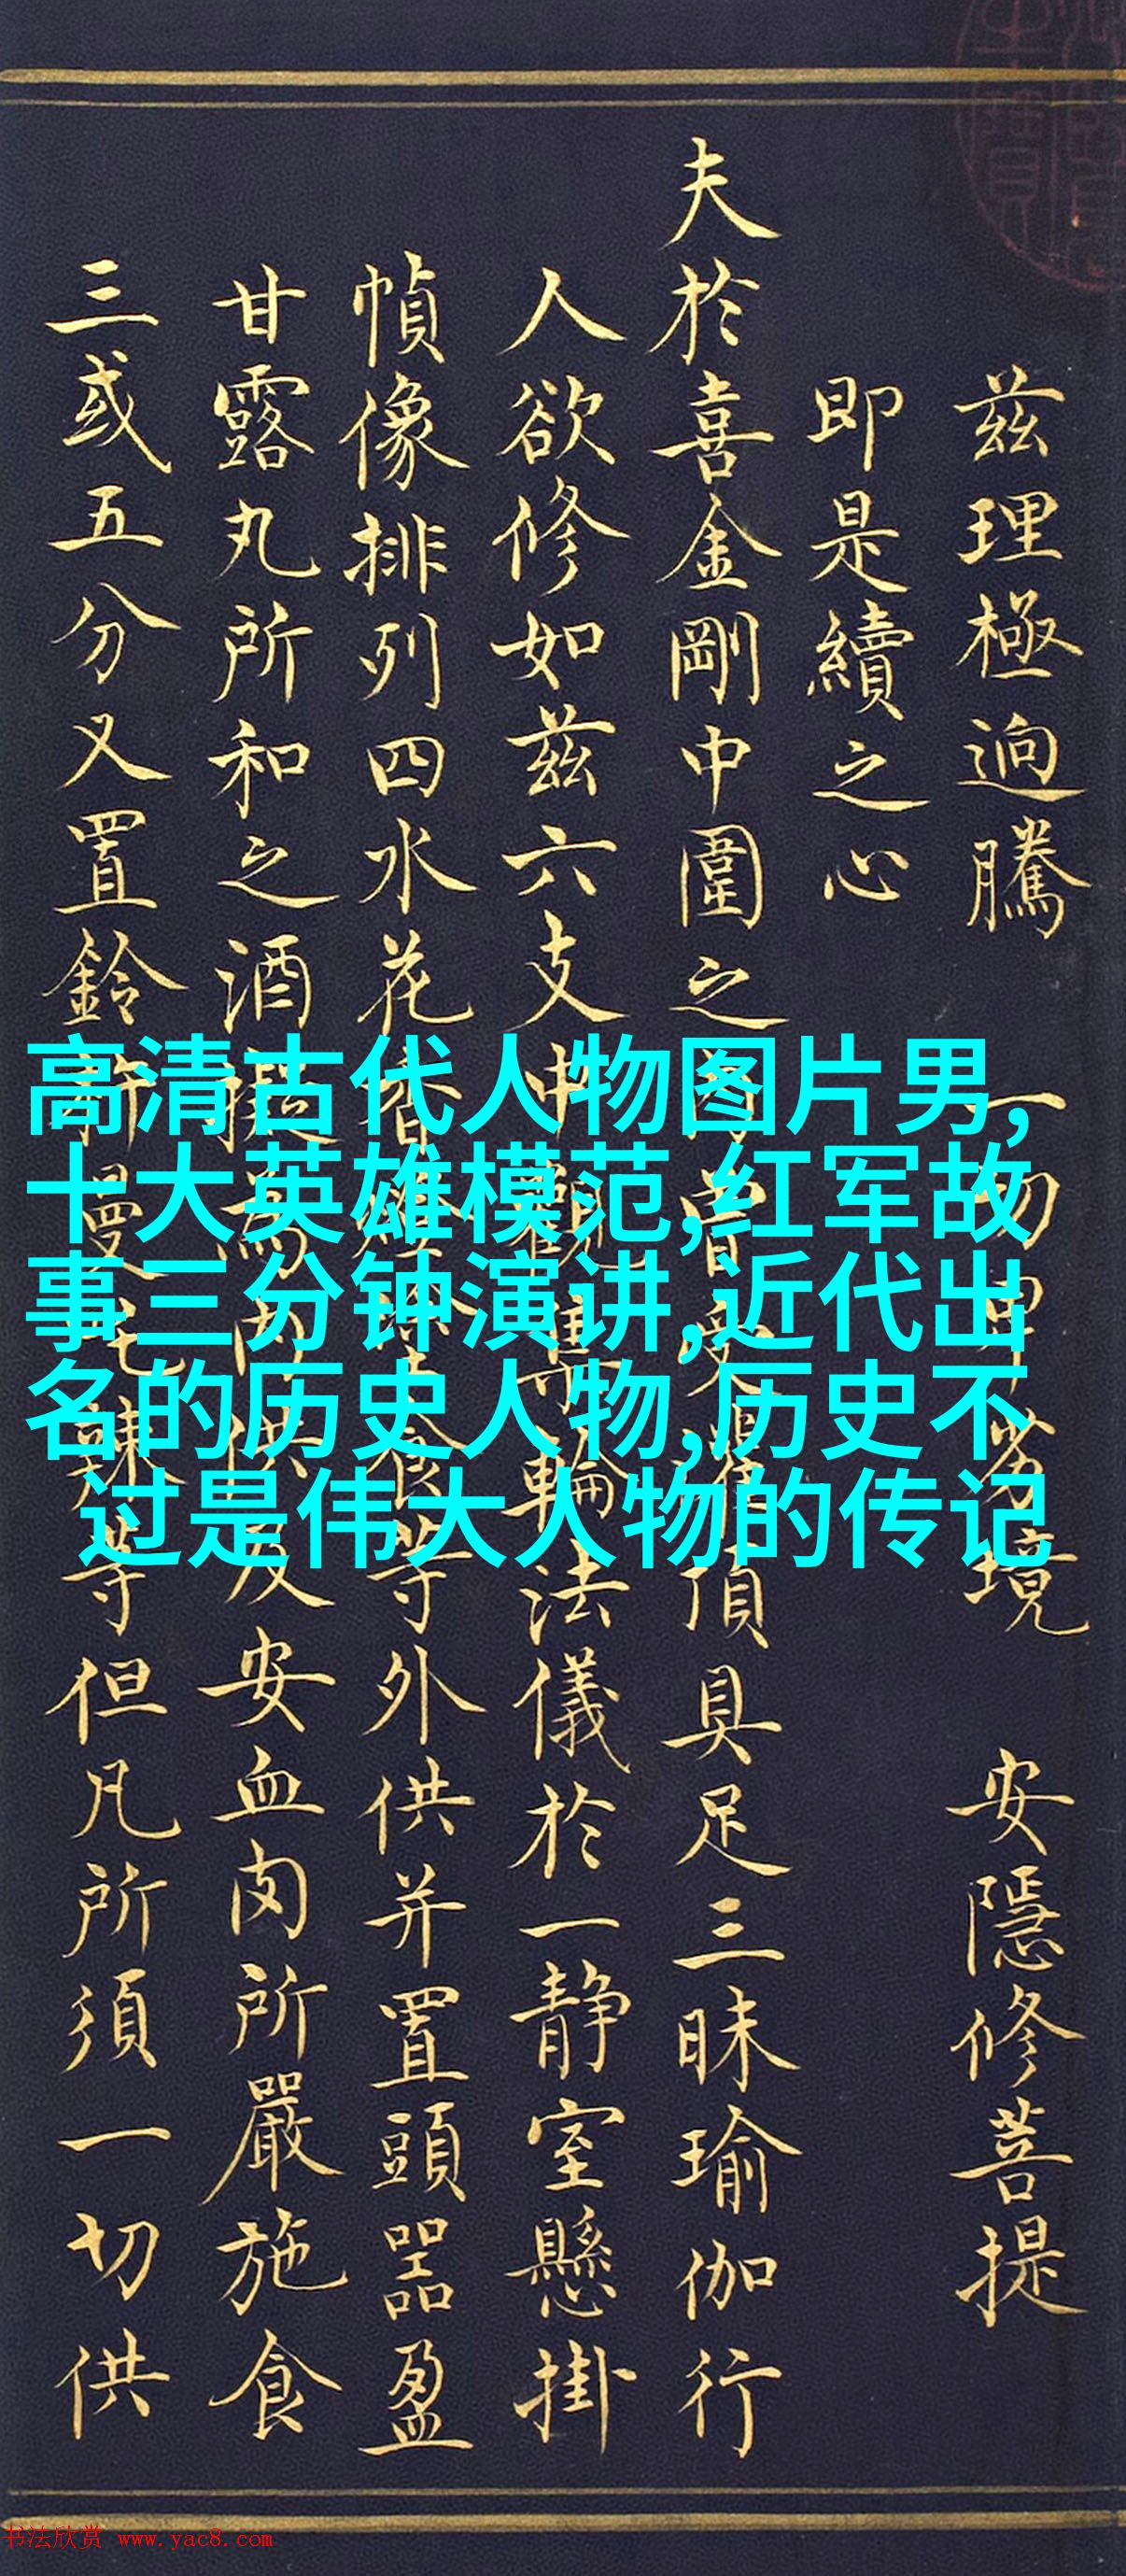 茲理極迥騰 一 境 安隱修菩提
即是續之心
夫於喜金剛中圍之 頂具足三昧瑜伽行
人欲修如茲六支 輪法儀於一靜室懸掛
幀像排列四水花 等外供并置頭器盈
甘露丸所和之酒 安血肉所嚴施食
三或五分又置鈴 等但凡所須一切供
高清古代人物图片男,
十大英雄模范,红军故
事三分钟演讲,近代出
名的历史人物,历史不
过是伟大人物的传记
书法欣赏 www.yac8.com